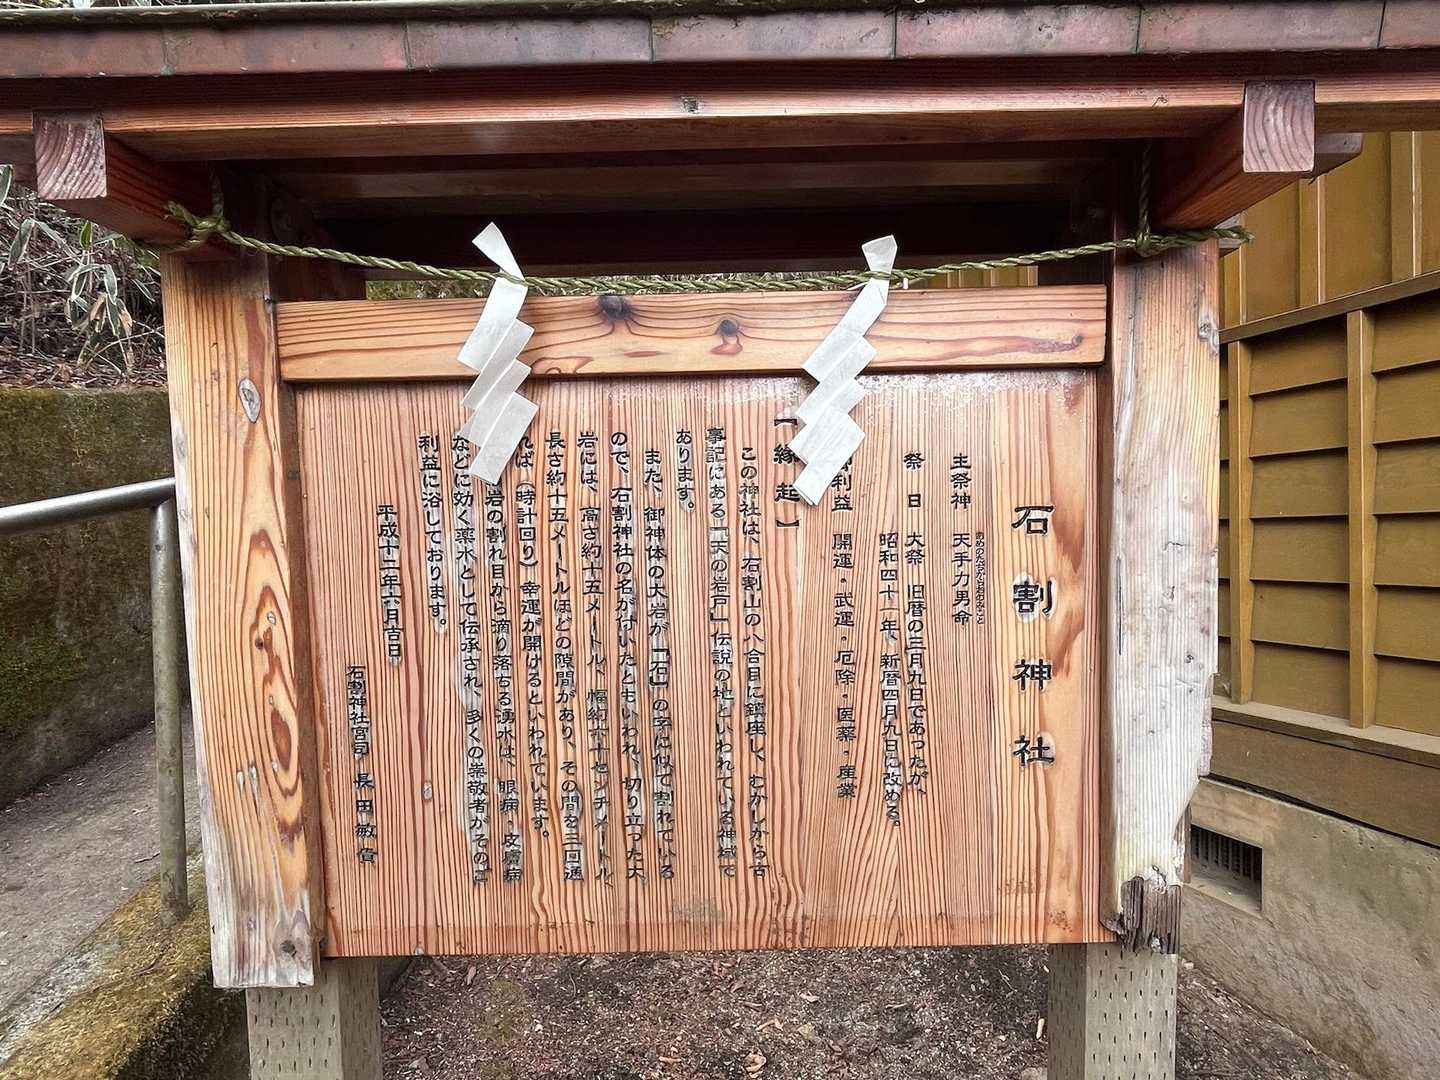 石割神社
主祭神 天手力男命
あめのたぢからおのみこと
祭日 大祭 旧暦の三月九日であったが、
昭和四十一年、新暦四月九日に改める。
利益 開運・武運・厄除・医薬・産業
【縁起】
この神社は、石割山の八合目に鎮座し、むかしから古
事記にある「天の岩戸」伝説の地といわれている神域で
あります。
また、御神体の大岩が「石」の字に似て割れている
ので、石割神社の名が付いたともいわれ、切り立った大
岩には、高さ約十五メートル、幅約六十センチメートル、
長さ約十五メートルほどの隙間があり、その間を三回通
れば（時計回り）幸運が開けるといわれています。
岩の割れ目から滴り落ちる湧水は、眼病・皮膚病
などに効く薬水として伝承され、多くの崇敬者がそのご
利益に浴しております。
平成十二年六月吉日
石割神社宮司 長田敏